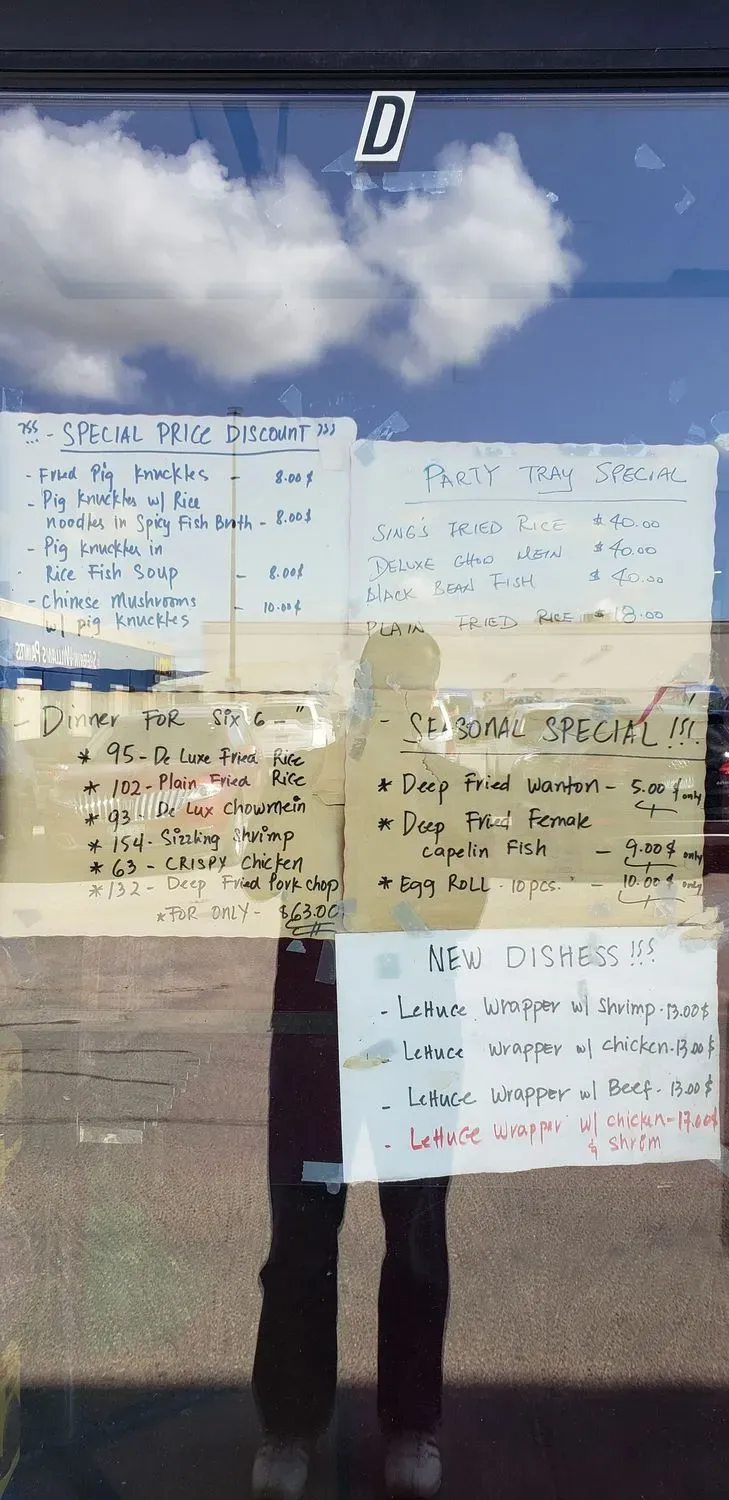 D
- SPECIAL PRICE DISCOUNT
- Fried Pig Knuckles - 8.00$
- Pig Knuckles w/ Rice
noodles in Spicy Fish Broth - 8.00$
- Pig Knuckles in
Rice Fish Soup - 8.00$
- Chinese Mushrooms - 10.00$
w/ pig Knuckles
PARTY TRAY SPECIAL
SING'S FRIED RICE $40.00
DELUXE CHOO MEIN $40.00
BLACK BEAN FISH $40.00
PLAIN FRIED RICE $18.00
SHERWIN-WILLIAMS PAINTS
- Dinner FOR Six 6 - "
* 95 - De Luxe Fried Rice
* 102 - Plain Fried Rice
* 93 - De Lux Chowmein
* 154 - Sizzling Shrimp
* 63 - CRISPY Chicken
* 132 - Deep Fried Pork chop
* FOR ONLY - $63.00
- SEASONAL SPECIAL !!!
* Deep Fried Wanton - 5.00 $ only
* Deep Fried Female
capelin Fish - 9.00 $ only
* Egg Roll - 10 pcs. - 10.00 $ only
NEW DISHESS !!!
- Lettuce Wrapper w/ Shrimp - 13.00$
- Lettuce Wrapper w/ chicken - 13.00$
- Lettuce Wrapper w/ Beef - 13.00$
- Lettuce Wrapper w/ chicken - 17.00$
& shrim